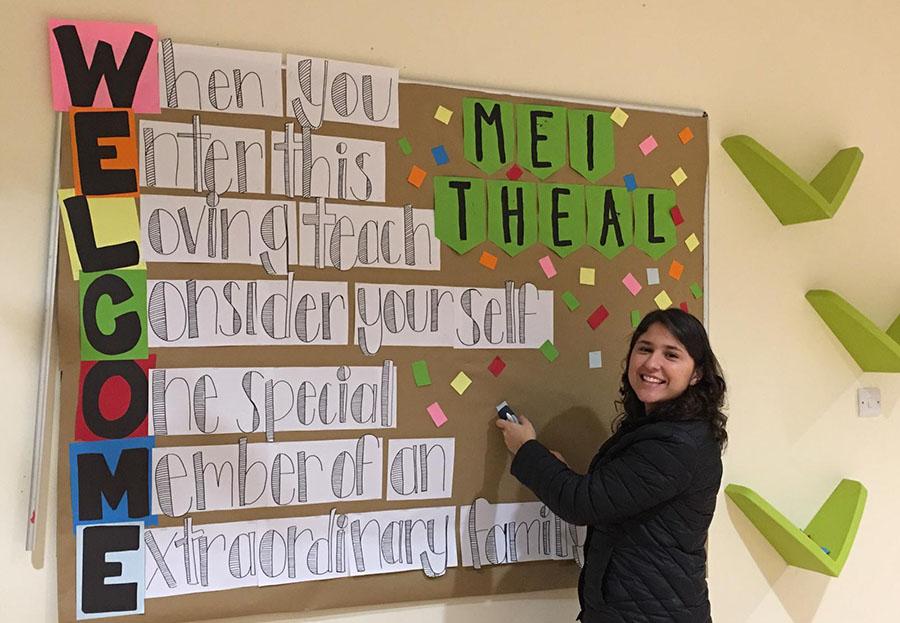 When you
Enter this
Loving teach
Consider yourself
One special
Member of an
Extraordinary family
MEI
THEAL